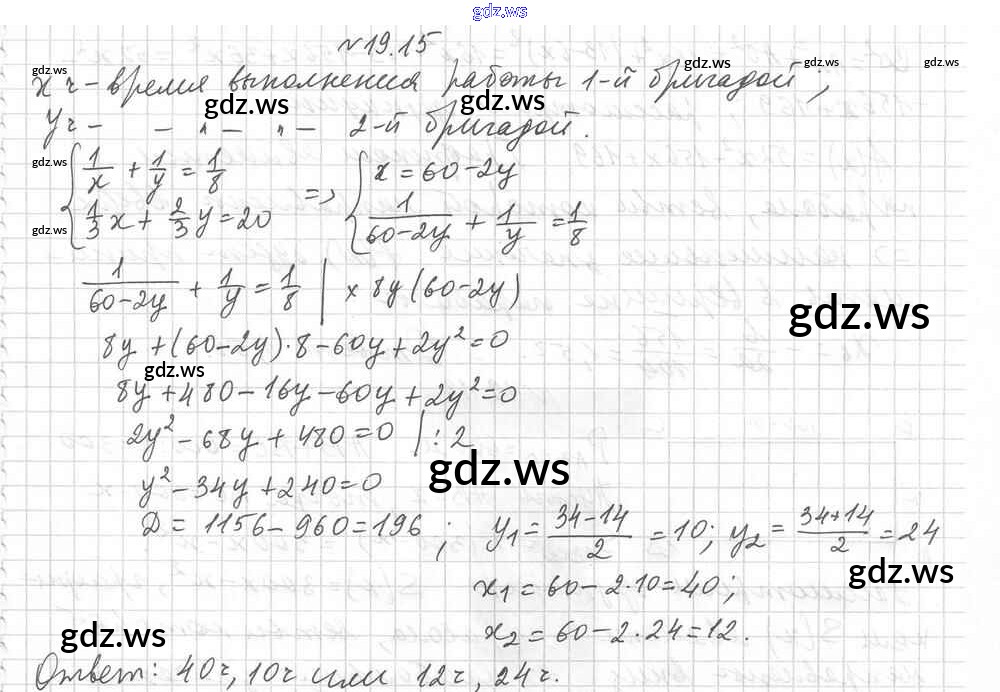 gdz.ws
№19.15
gdz.ws gdz.ws gdz.ws gdz.ws
x ч - время выполнения работы 1-й бригадой;
gdz.ws gdz.ws
y ч - - " - " - 2-й бригадой.
gdz.ws
{ 1/x + 1/y = 1/8 => { x = 60 - 2y
gdz.ws
1/3 x + 2/3 y = 20 1/(60-2y) + 1/y = 1/8
1/(60-2y) + 1/y = 1/8 | × 8y(60-2y)
gdz.ws
8y + (60-2y)·8 - 60y + 2y² = 0
gdz.ws
8y + 480 - 16y - 60y + 2y² = 0
2y² - 68y + 480 = 0 | : 2
gdz.ws
y² - 34y + 240 = 0
D = 1156 - 960 = 196 ; y₁ = (34-14)/2 = 10; y₂ = (34+14)/2 = 24
gdz.ws
x₁ = 60 - 2·10 = 40;
gdz.ws
x₂ = 60 - 2·24 = 12.
Ответ: 40ч, 10ч или 12ч, 24ч.